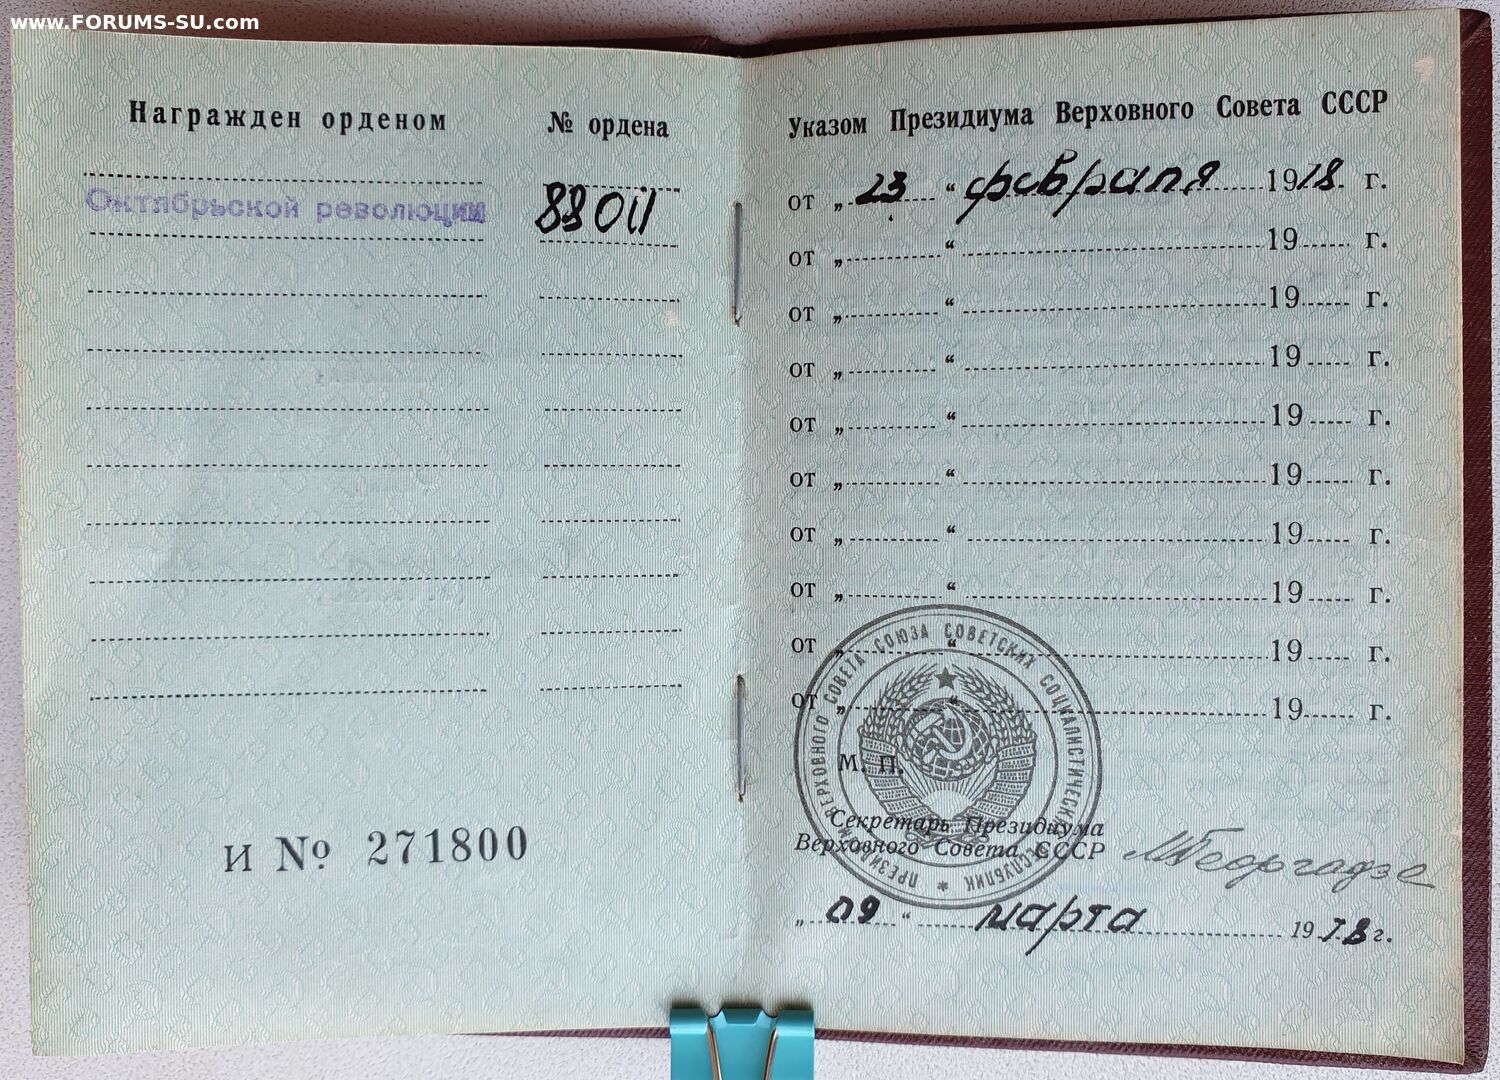 www.FORUMS-SU.com
Награжден орденом № ордена
Октябрьской революции 88011
И № 271800
Указом Президиума Верховного Совета СССР
от „ 23 “ февраля 1978 г.
от „ “ 19 г.
от „ “ 19 г.
от „ “ 19 г.
от „ “ 19 г.
от „ “ 19 г.
от „ “ 19 г.
от „ “ 19 г.
от „ “ 19 г.
от „ “ 19 г.
М. П.
ПРЕЗИДИУМ ВЕРХОВНОГО СОВЕТА СОЮЗА СОВЕТСКИХ СОЦИАЛИСТИЧЕСКИХ РЕСПУБЛИК
Секретарь Президиума
Верховного Совета СССР МГеоргадзе
„ 09 “ марта 1978 г.